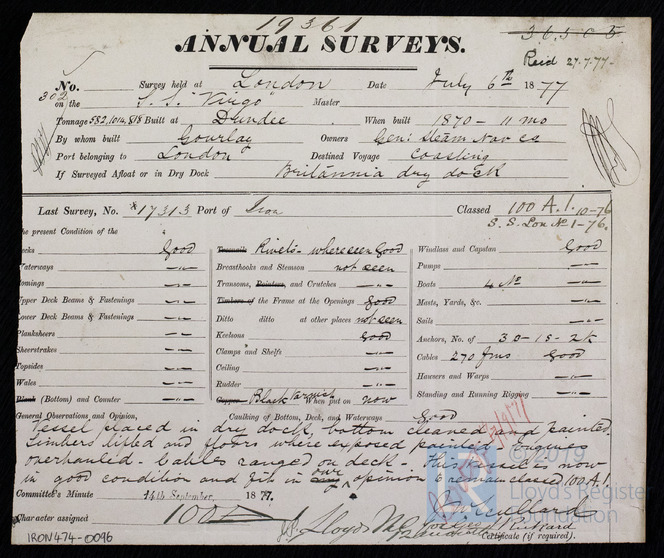 19361
36505
ANNUAL SURVEYS.
Recd 27.7.77
No. 302 Survey held at London Date July 6th 1877
on the S.S. Virgo Master
Tonnage 582, 1014, 818 Built at Dundee When built 1870 - 11 mo
By whom built Gourlay Owners Gen: Steam Nav Co
Port belonging to London Destined Voyage Coasting
If Surveyed Afloat or in Dry Dock Britannia dry dock
Last Survey, No. *17313 Port of Iron Classed 100 A.1. 10-76
S. S. Lon No 1-76.
he present Condition of the
ecks Good
Waterways "
omings "
Upper Deck Beams & Fastenings "
Lower Deck Beams & Fastenings "
Planksheers "
Sheerstrakes "
Topsides "
Wales "
Plank (Bottom) and Counter "
Treenails Rivets - where seen Good
Breasthooks and Stemson not seen
Transoms, Pointers, and Crutches "
Timbers of the Frame at the Openings good
Ditto ditto at other places not seen
Keelsons good
Clamps and Shelfs "
Ceiling "
Rudder "
Copper Black Varnish When put on now
Caulking of Bottom, Deck, and Waterways Good
Windlass and Capstan Good
Pumps "
Boats 4 No
Masts, Yards, &c. "
Sails "
Anchors, No. of 3 B - 1 S - 2 K
Cables 270 fms Good
Hawsers and Warps "
Standing and Running Rigging "
General Observations and Opinion,
Vessel placed in dry dock, bottom cleaned and painted
Limbers lifted and floors where exposed painted Engines
overhauled. Cables ranged on deck - This vessel is now
in good condition and fit in our opinion to remain classed 100 A.1.
Committee's Minute 14th September, 1877.
Character assigned 100A1
Lloyds MC
Certificate (if required).
IRON474-0096
© 2019
Lloyd's Register
Foundation